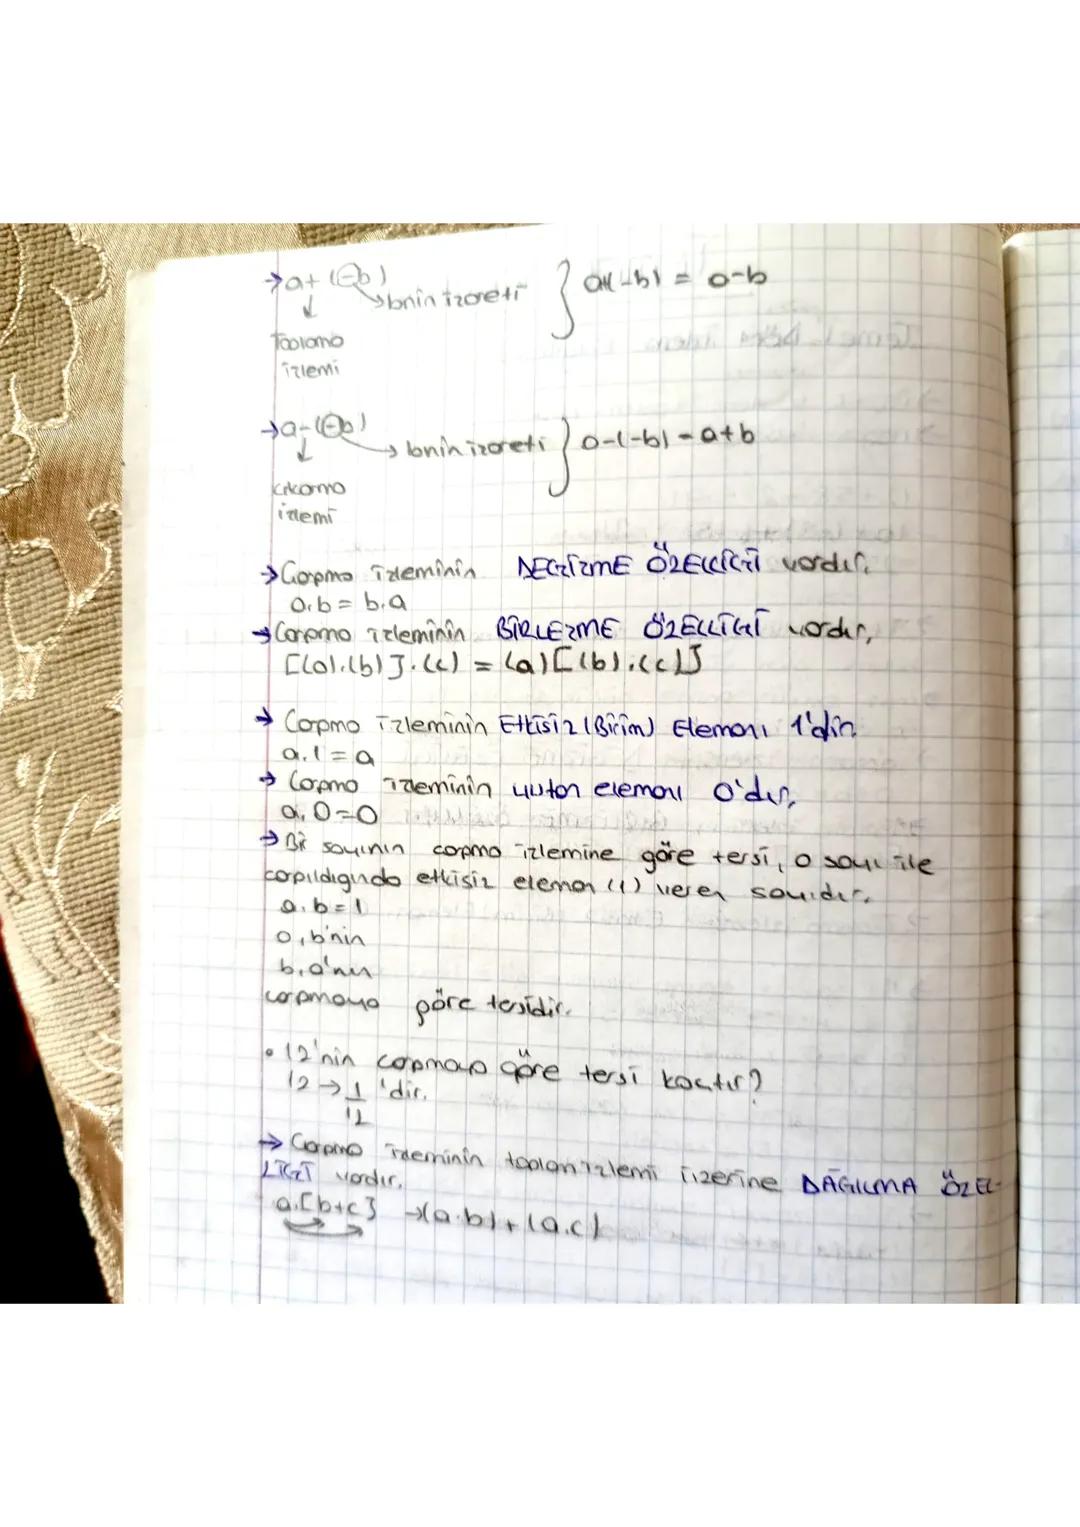 →a+(-b) →b'nin işareti } a+(-b) = a-b
↓
Toplama
işlemi
→a-(-b) → b'nin işareti } a-(-b) = a+b
↓
Çıkarma
işlemi
→Çarpma işleminin DEĞİŞME ÖZELLİĞİ vardır.
a.b = b.a
→Çarpma işleminin BİRLEŞME ÖZELLİĞİ vardır.
[(a).(b)].(c) = (a)[(b).(c)]
→ Çarpma işleminin Etkisiz (Birim) Elemanı 1'dir.
a.1 = a
→ Çarpma işleminin yutan elemanı 0'dır.
a.0=0
→Bir sayının çarpma işlemine göre tersi, o sayı ile
çarpıldığında etkisiz eleman (1) veren sayıdır.
a.b=1
a, b'nin
b, a'nın
çarpmaya göre tersidir.
• 12'nin çarpmaya göre tersi kaçtır?
12→ 1 'dir.
12
→ Çarpma işleminin toplam işlemi üzerine DAĞILMA ÖZEL-
LİĞİ vardır.
a.[b+c] →(a.b)+(a.c)